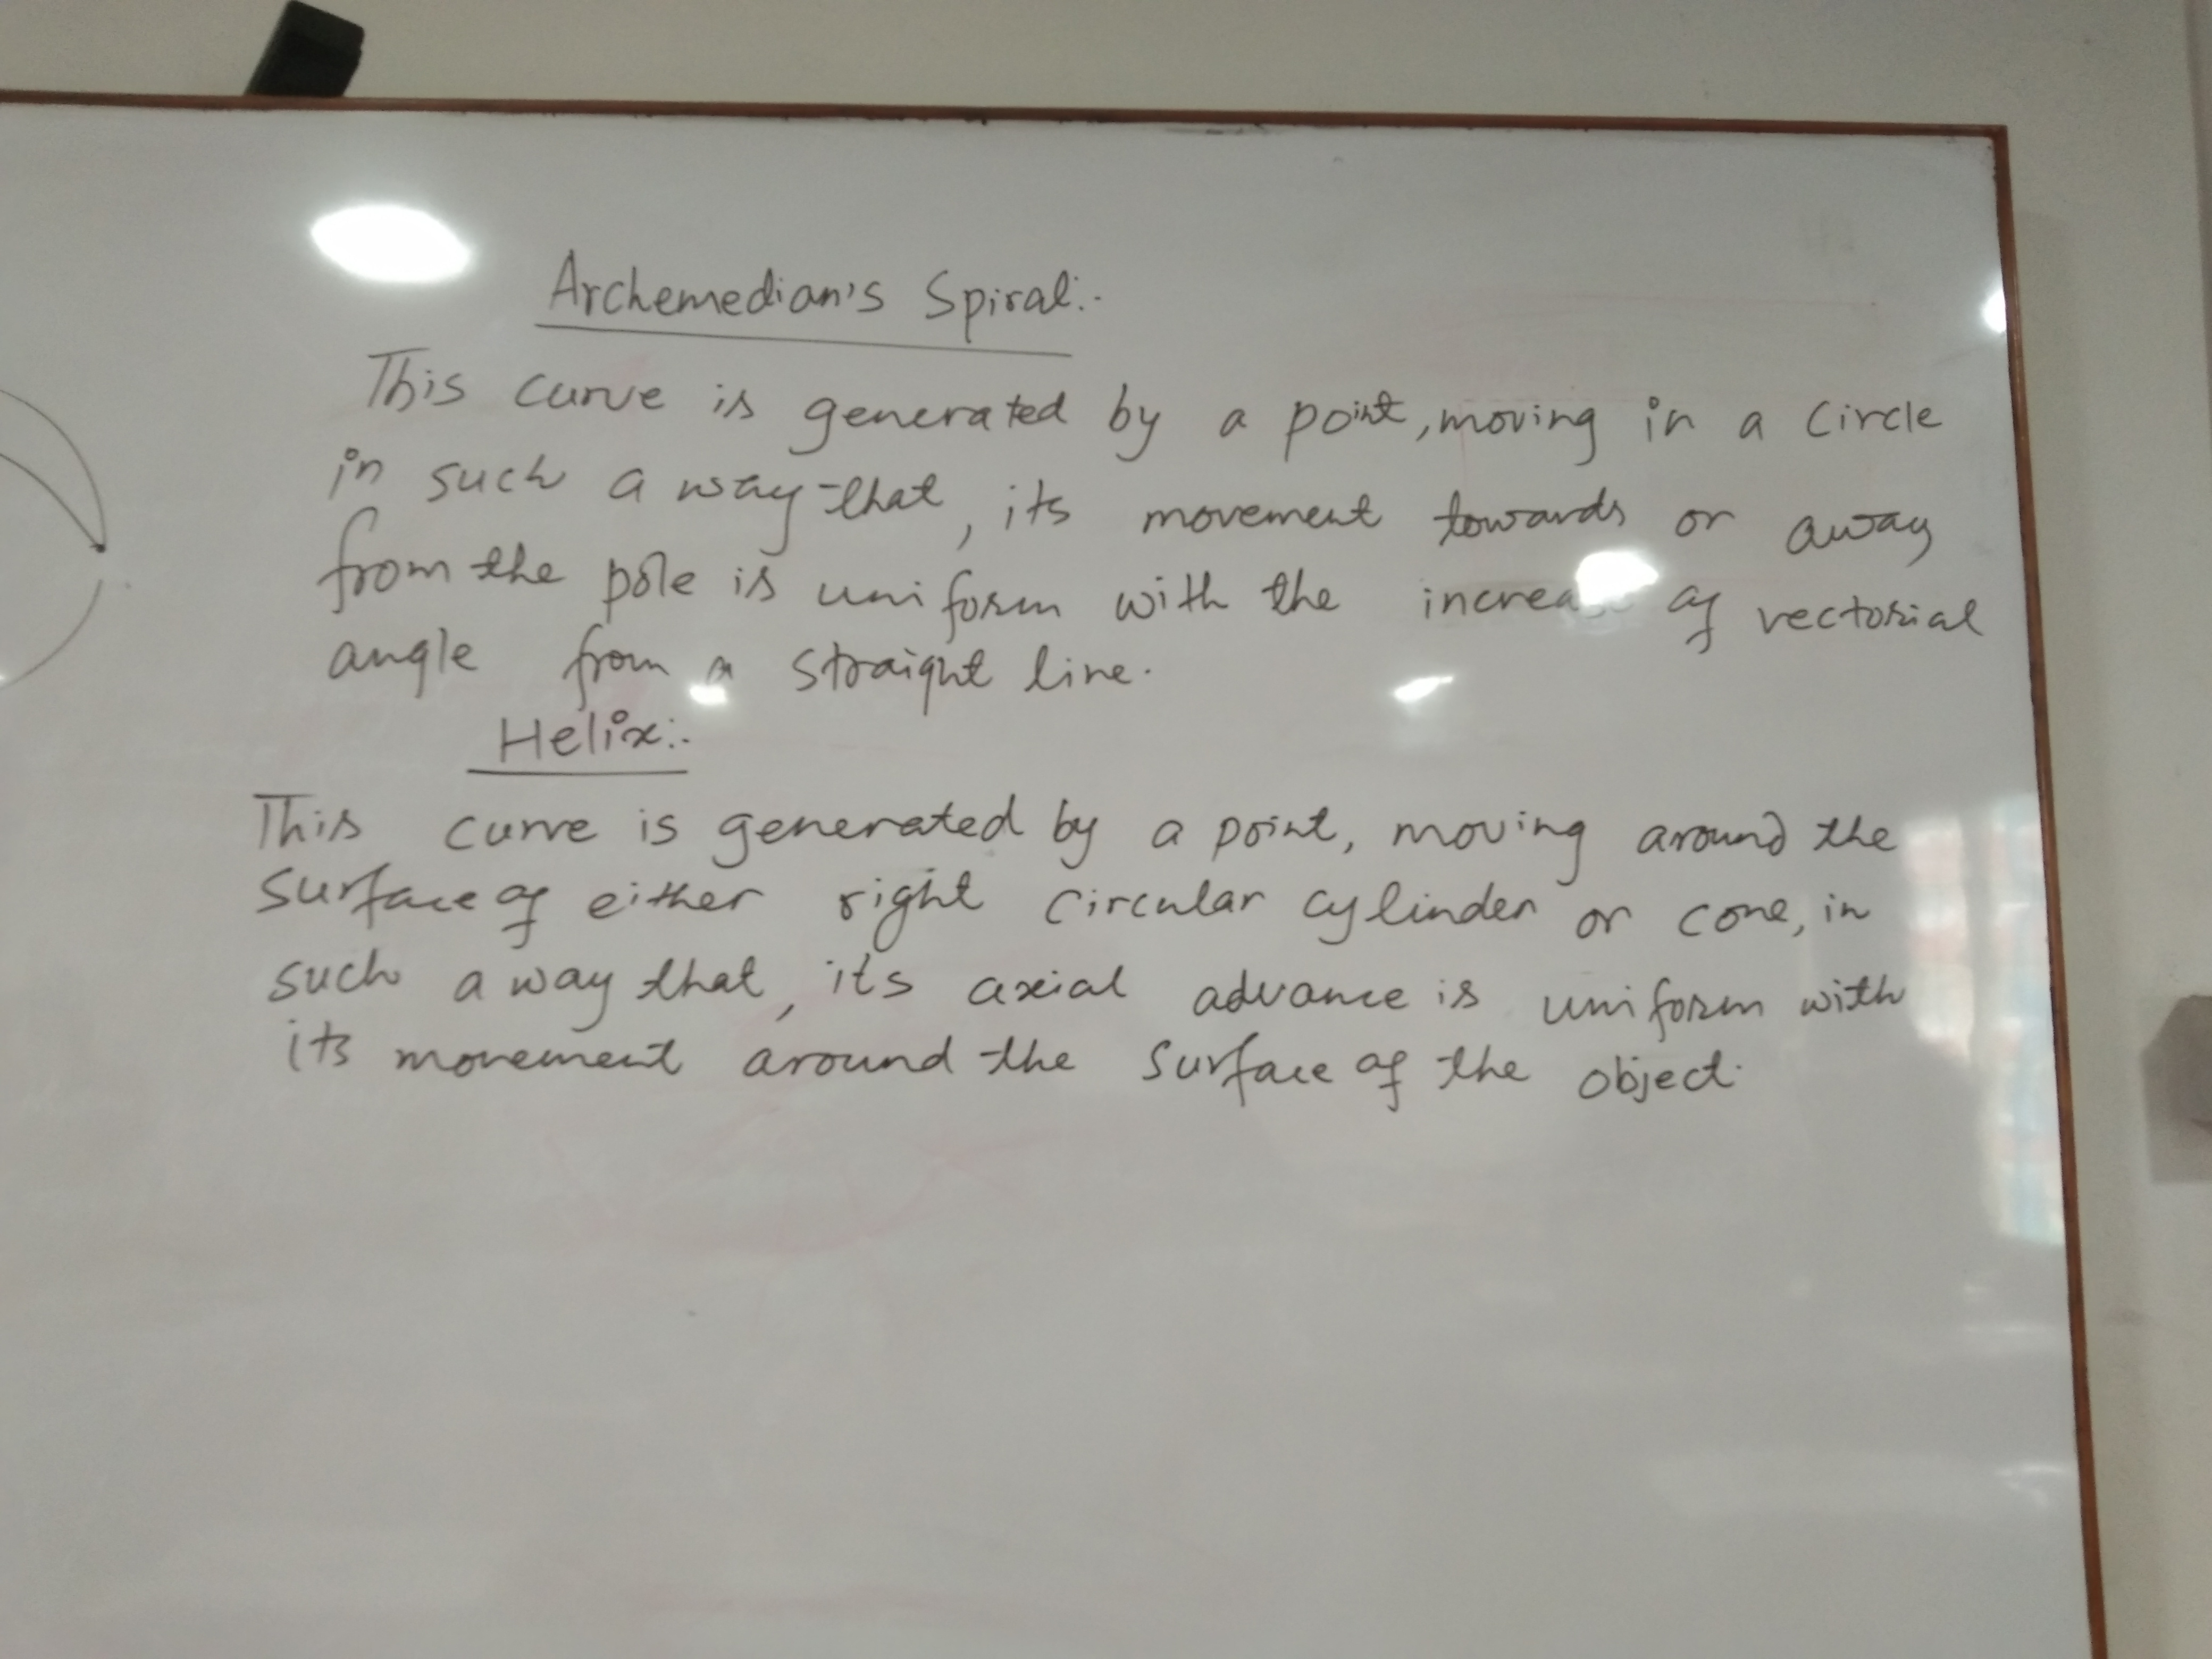 Archemedian's Spiral:-
This curve is generated by a point, moving in a circle
in such a way that, its movement towards or away
from the pole is uniform with the increase of vectorial
angle from a straight line.
Helix:-
This curve is generated by a point, moving around the
surface of either right circular cylinder or cone, in
such a way that, it's axial advance is uniform with
its movement around the surface of the object.